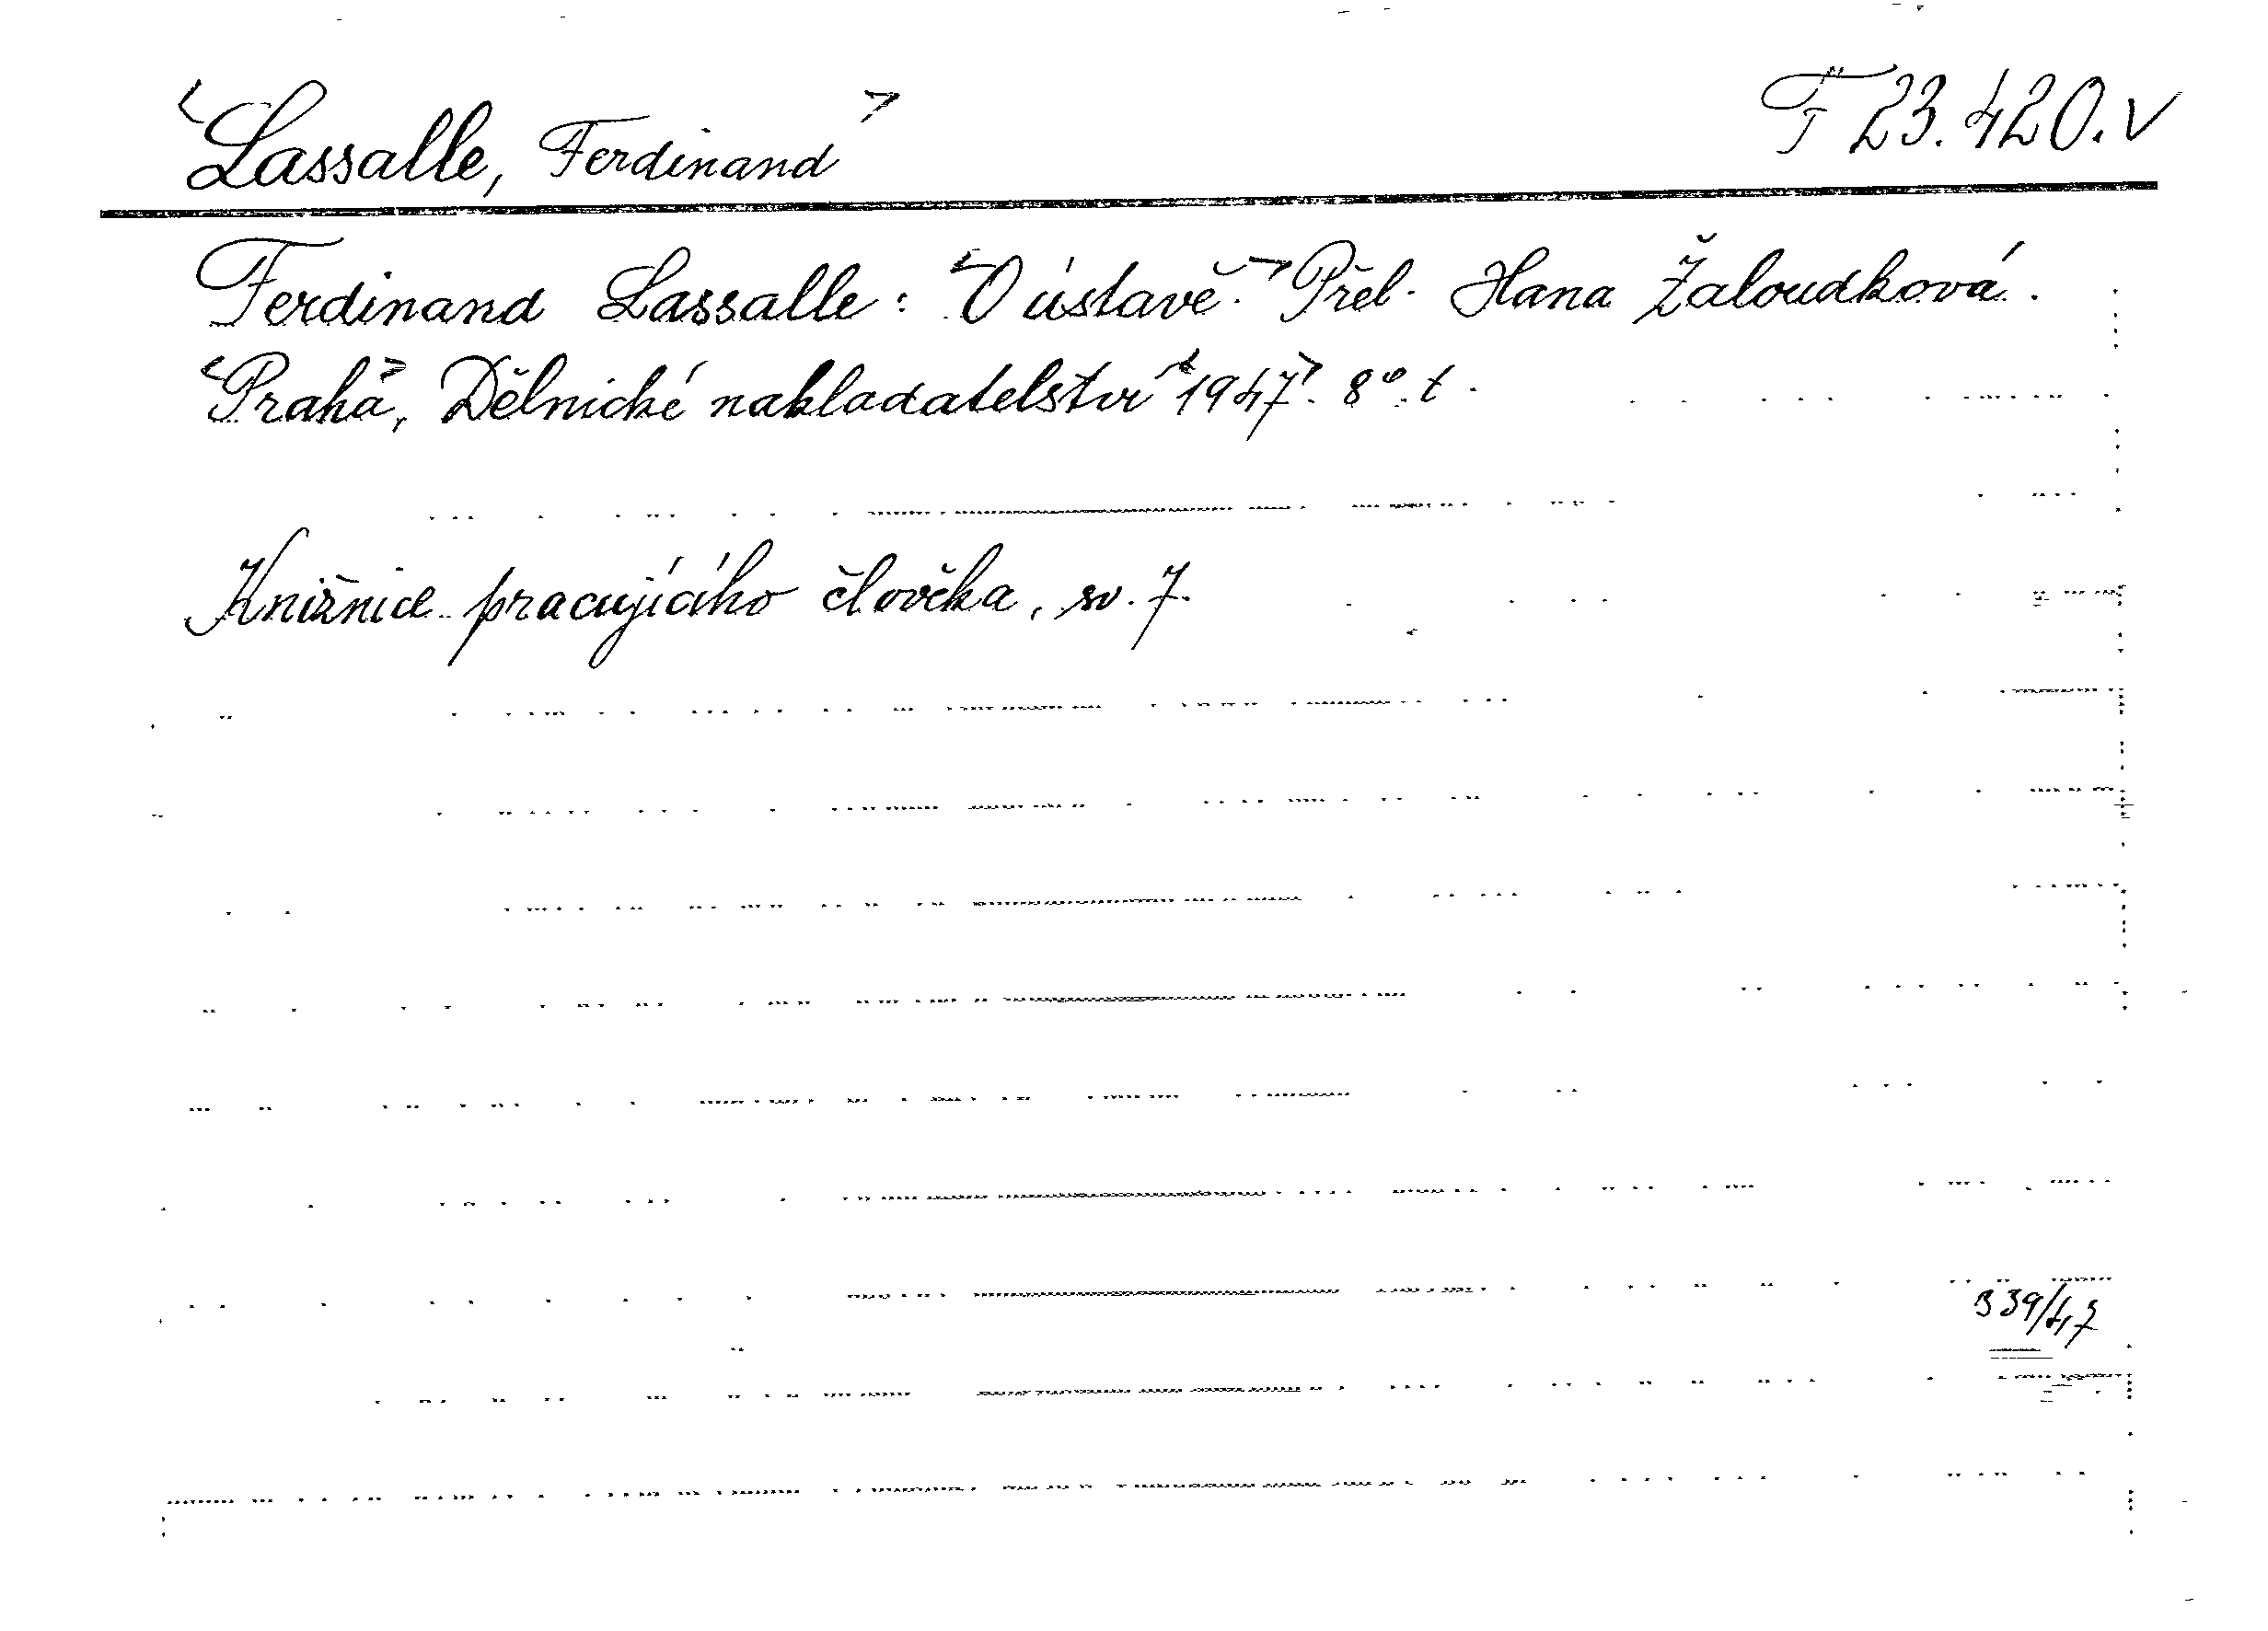 <Lassalle, Ferdinand> F 23.420.V
Ferdinand Lassalle: <O ústavě.> Přel. Hana Žaloudková.
<Praha>, Dělnické nakladatelství <1947>. 8°. t.
Knižnice pracujícího člověka, sv. 7.
339/47